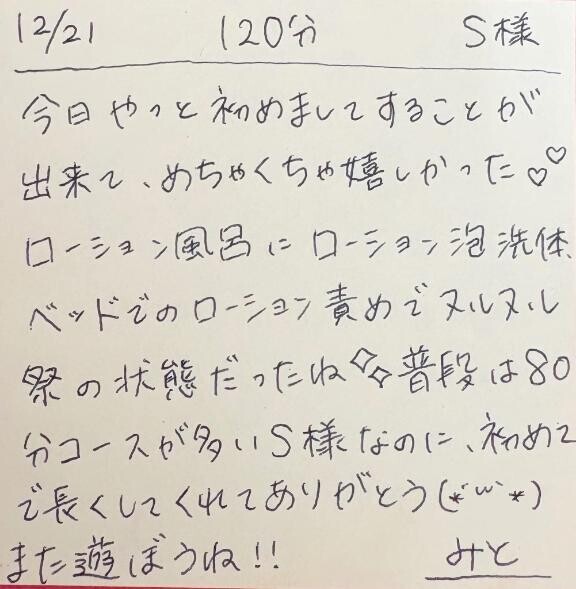 12/21 120分 S様
今日やっと初めましてすることが
出来て、めちゃくちゃ嬉しかった♡♡
ローション風呂にローション泡洗体、
ベッドでのローション責めでヌルヌル
祭の状態だったね✧✧普段は80
分コースが多いS様なのに、初めて
で長くしてくれてありがとう(*¨ω¨*)
また遊ぼうね!! みと